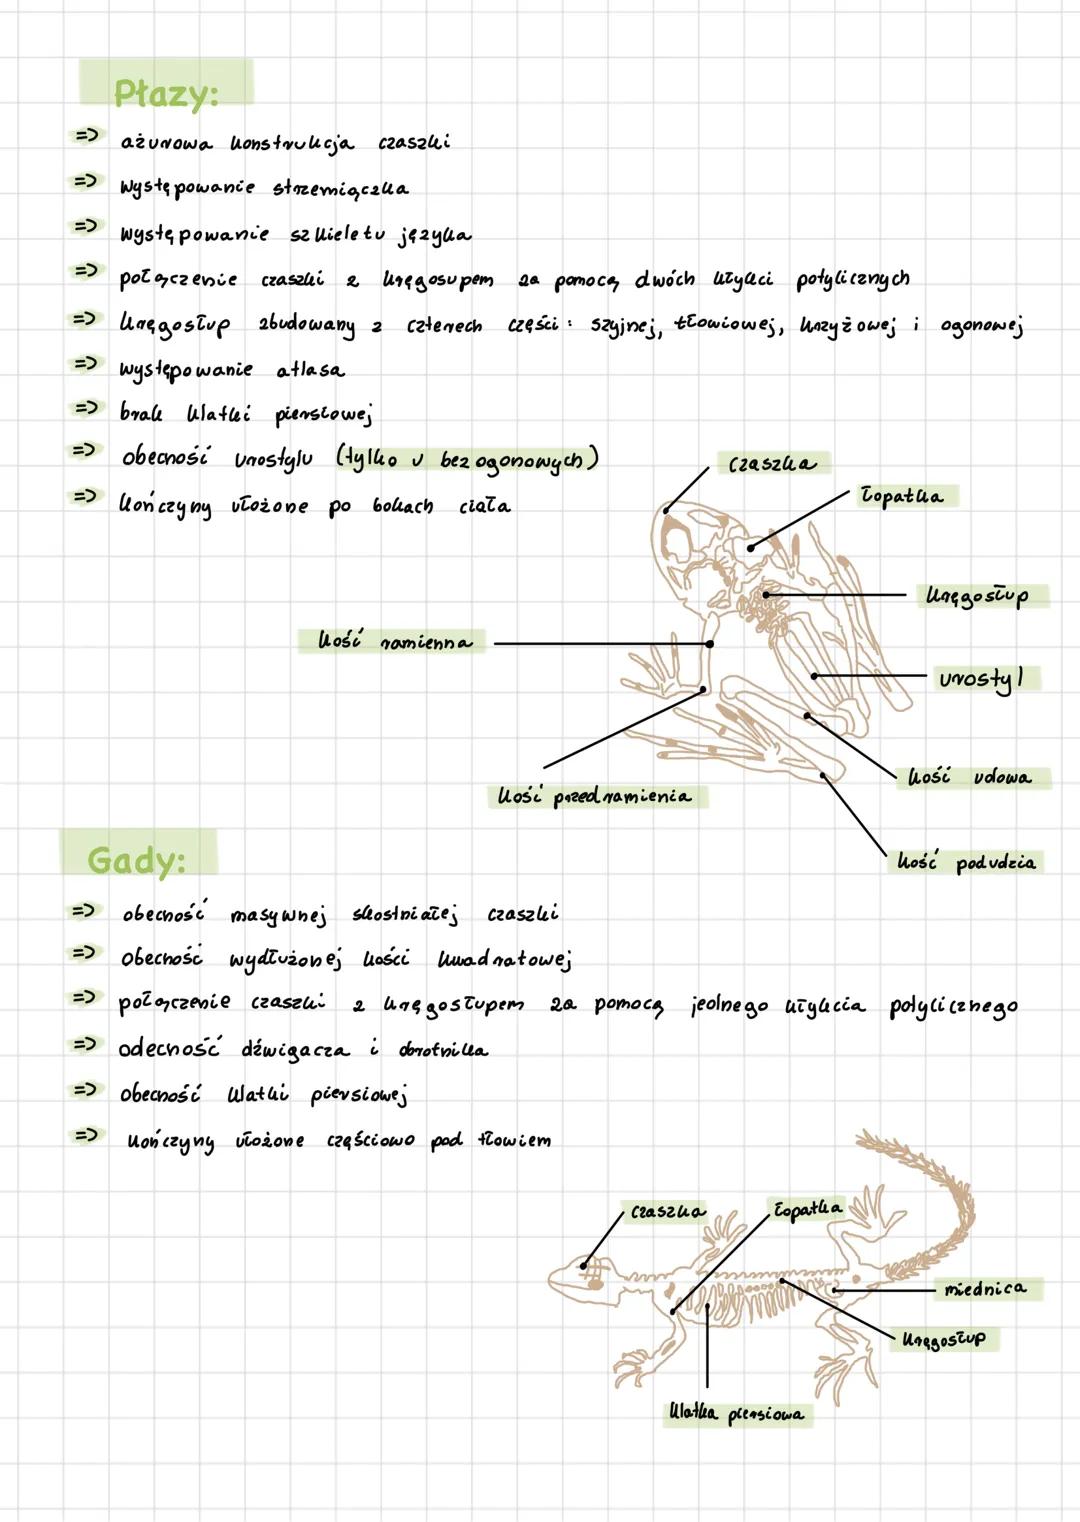 Płazy:
=> ażurowa konstrukcja czaszki
=> występowanie strzemiączka
=> występowanie szkieletu języka
=> połączenie czaszki z kręgosupem za pomocą dwóch kłykci potylicznych
=> kręgosłup zbudowany z czterech części: szyjnej, tłowiowej, krzyżowej i ogonowej
=> występowanie atlasa
=> brak klatki piersiowej
=> obecność urostylu (tylko u bezogonowych)
=> kończyny ułożone po bokach ciała
czaszka
łopatka
kręgosłup
kość ramienna
urostyl
kość udowa
kość przedramienia
kość podudzia
Gady:
=> obecność masywnej skostniałej czaszki
=> obecność wydłużonej kości kwadratowej
=> połączenie czaszki z kręgosłupem za pomocą jednego kłykcia potylicznego
=> odecność dźwigacza i obrotnika
=> obecność klatki piersiowej
=> kończyny ułożone częściowo pod tłowiem
czaszka
łopatka
miednica
kręgosłup
klatka piersiowa